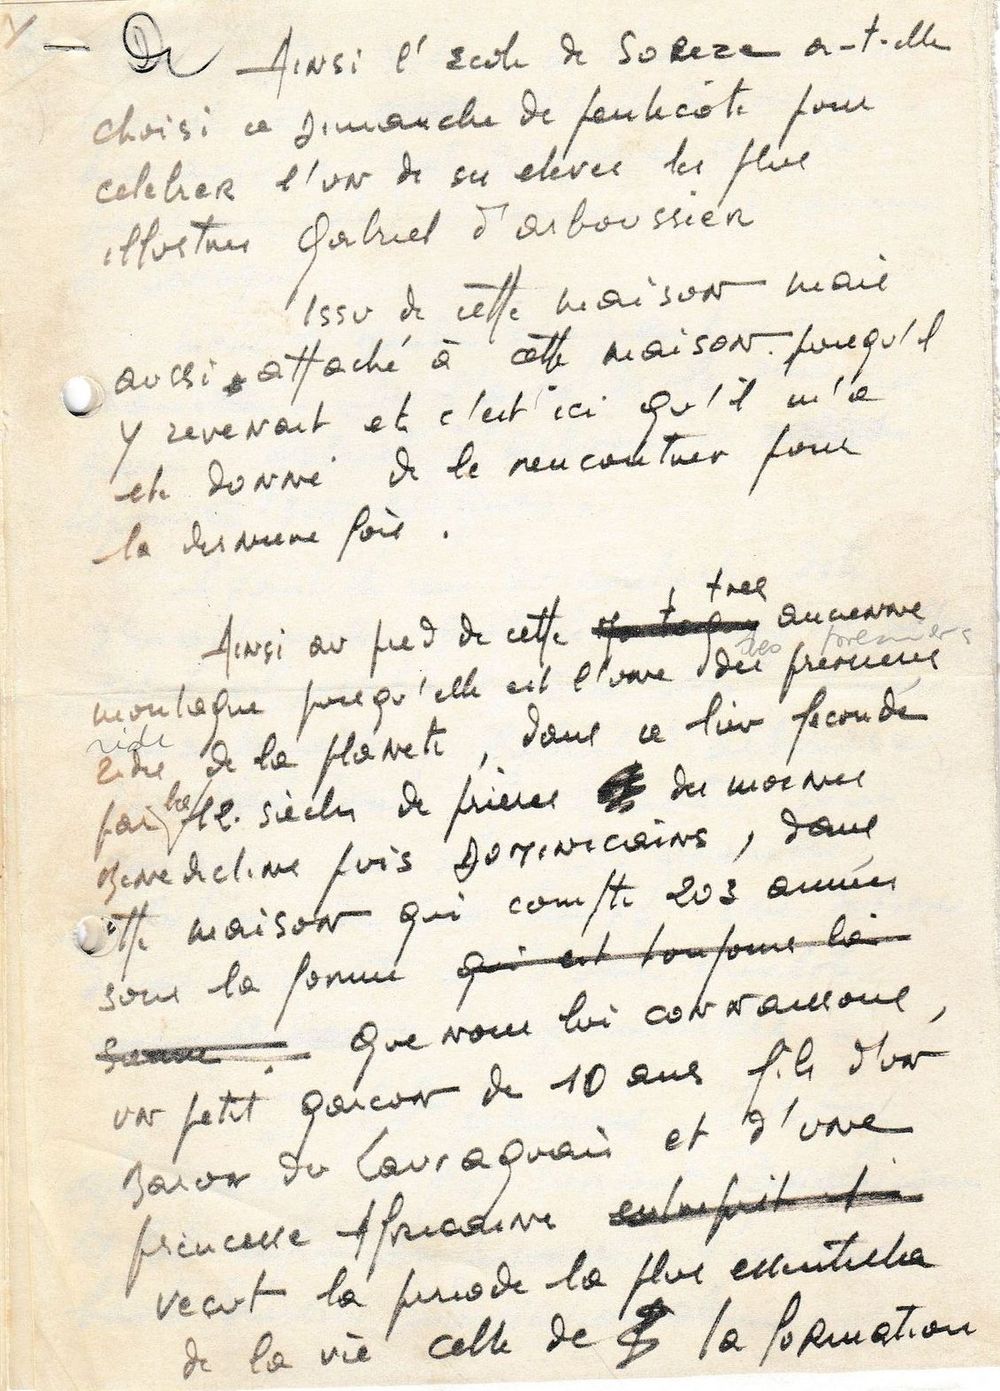 De Ainsi l'Ecole de Soreze a-t-elle
choisi ce Dimanche de pentecôte pour
celebrer l'un de ses eleves les plus
illustres Gabriel d'arboussier
Issu de cette maison mais
aussi attaché à cette maison puisqu'il
y revenait et c'est ici qu'il m'a
ete donné de le rencontrer pour
la derniere fois.
tres
Ainsi au pied de cette montagne ancienne
des premiers
montagne puisqu'elle est l'une des premieres
ride
rides de la planete, dans ce lieu feconde
par les 12. siecles de prieres des moines
Benedictins puis Dominicains, dans
cette maison qui compte 203 années
sous la forme qui est toujours la
sienne. que nous lui connaissons,
un petit garcon de 10 ans fils d'un
Baron du Lauraguais et d'une
princesse Africaine entreprit
vecut la periode la plus essentielle
de la vie celle de la formation